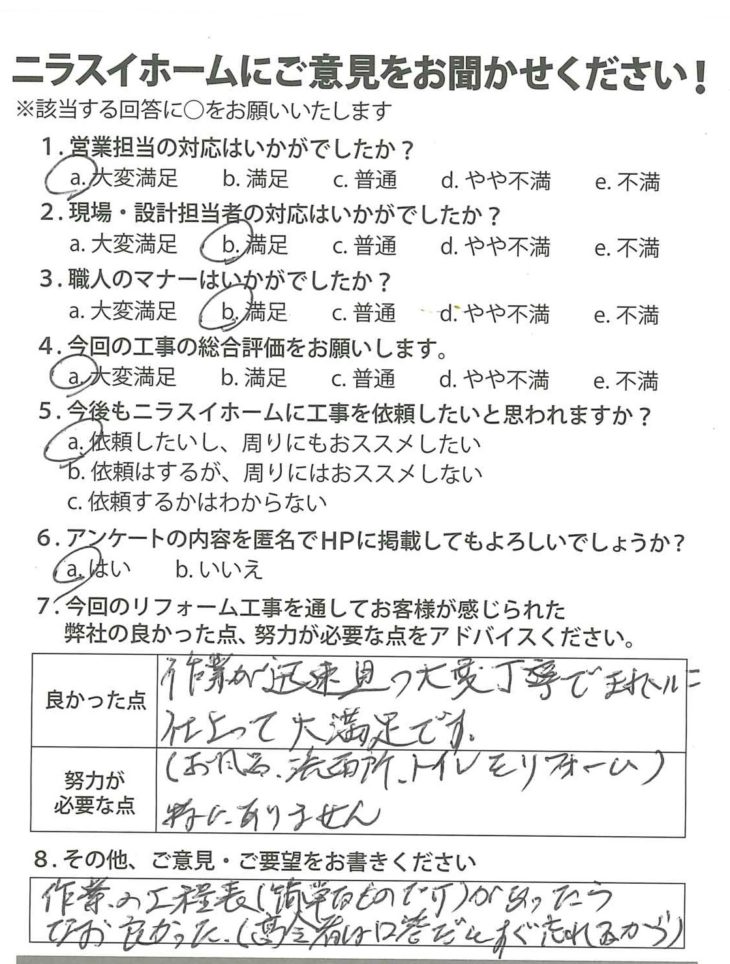 ニラスイホームにご意見をお聞かせください！
※該当する回答に○をお願いいたします
1．営業担当の対応はいかがでしたか？
a. 大変満足　b. 満足　c. 普通　d. やや不満　e. 不満
2．現場・設計担当者の対応はいかがでしたか？
a. 大変満足　b. 満足　c. 普通　d. やや不満　e. 不満
3．職人のマナーはいかがでしたか？
a. 大変満足　b. 満足　c. 普通　d. やや不満　e. 不満
4．今回の工事の総合評価をお願いします。
a. 大変満足　b. 満足　c. 普通　d. やや不満　e. 不満
5．今後もニラスイホームに工事を依頼したいと思われますか？
a. 依頼したいし、周りにもおススメしたい
b. 依頼はするが、周りにはおススメしない
c. 依頼するかはわからない
6．アンケートの内容を匿名でHPに掲載してもよろしいでしょうか？
a. はい　b. いいえ
7．今回のリフォーム工事を通してお客様が感じられた
弊社の良かった点、努力が必要な点をアドバイスください。
良かった点
作業が迅速且つ大変丁寧で
仕上って大満足です。
(お風呂、洗面所、トイレをリフォーム)
努力が
必要な点
特にありません
8．その他、ご意見・ご要望をお書きください
作業の工程表(簡単なもので可)があったら
なお良かった。(高令者は口答だとすぐ忘れるから)